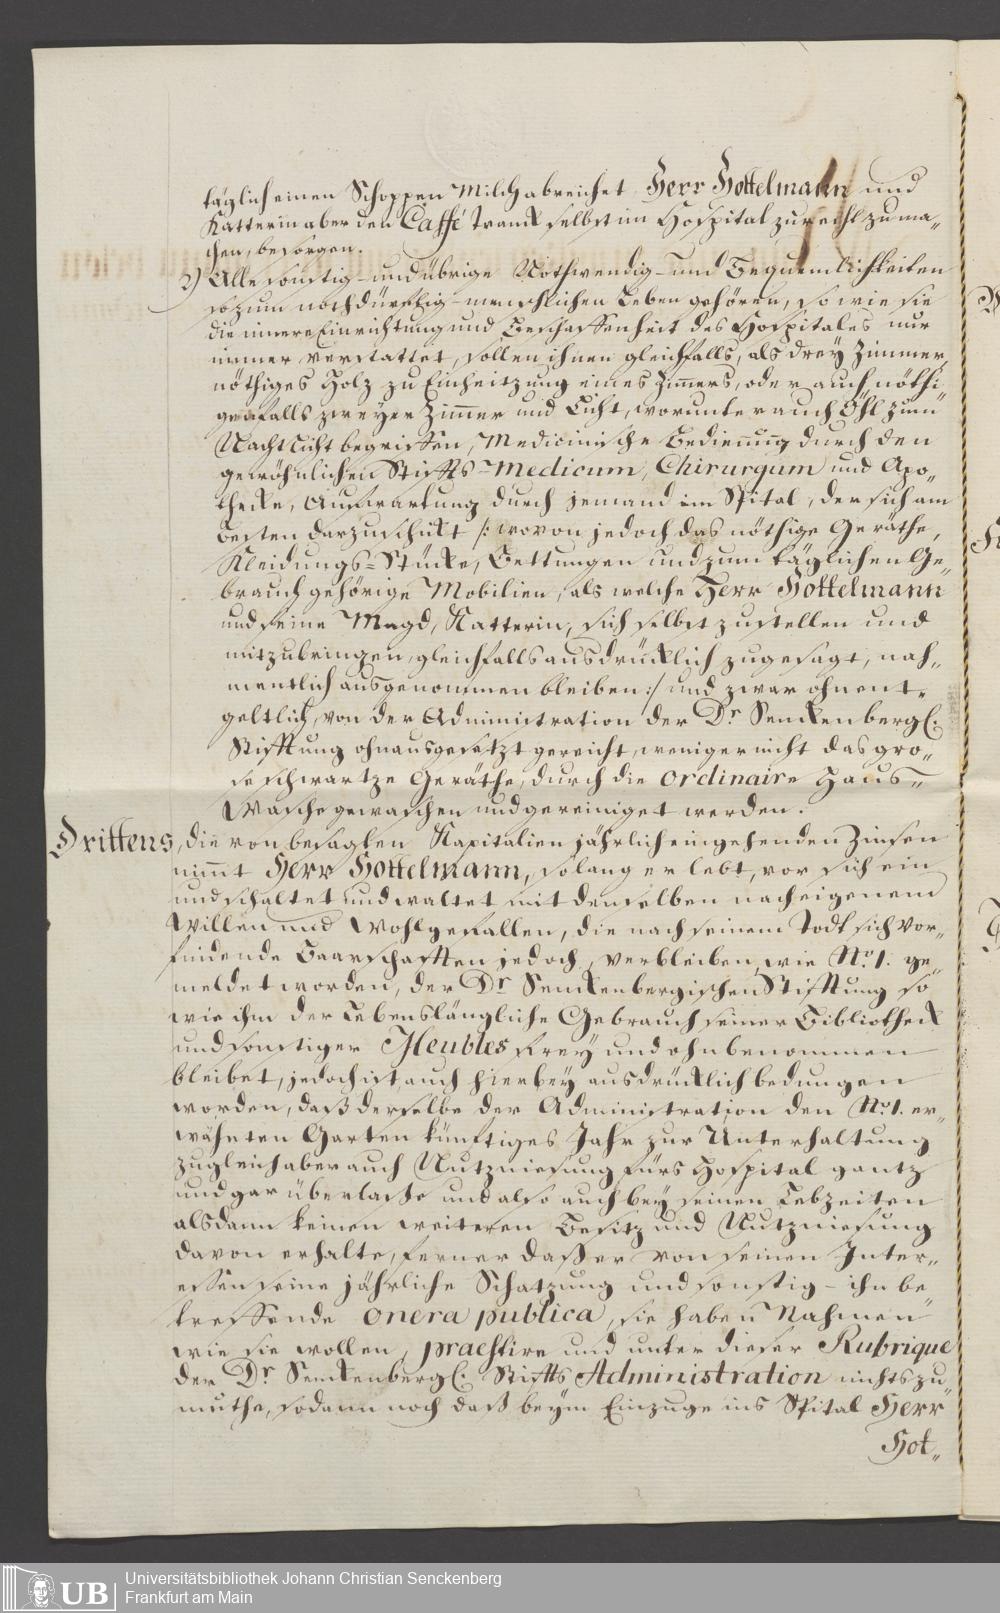 täglich einen Schoppen Milch abreichet Herr Hottelmann und
Katterin aber den Caffé Tranck selbst im Hospital zurecht zu ma-
chen, besorgen.
2) Alle sonstig- und übrige Nothwendig- und Bequemlichkeiten
so zum nothdürftig-menschlichen Leben gehören, so wie sie
die innere Einrichtung und Beschaffenheit des Hospitales nur
immer verstattet, sollen ihnen gleichfalls, als drey Zimmer,
nöthiges Holz zu Einheitzung eines Zimmers, oder auch nöthi-
genfalls zweyer Zimmer und Licht, worunter auch Öhl zum
Nacht Licht begriffen, Medicinische Bedienung durch den
gewöhnlichen Stiffts-Medicum, Chirurgum und Apo-
theke, Aufwartung durch jemand im Spital, der sich am
besten darzu schikt /: wovon jedoch das nöthige Geräthe,
Kleidungs-Stücke, Bettungen und zum täglichen Ge-
brauch gehörige Mobilien, als welche Herr Hottelmann
und seine Magd, Katterin, sich selbst zu stellen und
mitzubringen, gleichfalls ausdrücklich zugesagt, nah-
mentlich ausgenommen bleiben :/ und zwar ohnent-
geltlich, von der Administration der Dr. Senckenbergl.
Stifftung ohnausgesetzt gereicht, weniger nicht das gro-
se schwartze Geräthe, durch die ordinaire Haus-
Wasche gewaschen und gereiniget werden.
Drittens, die von besagten Kapitalien jährlich eingehenden Zinsen
nimmt Herr Hottelmann, solang er lebt, vor sich ein
und schaltet und waltet mit denselben nach eigenem
Willen und Wohlgefallen, die nach seinem Todt sich vor-
findende Baarschafften jedoch, verbleiben, wie No. 1. ge-
meldet worden, der Dr. Senckenbergischen Stifftung so
wie ihm der Lebenslängliche Gebrauch seiner Bibliotheck
und sonstiger Meubles frey und ohnbenommen
bleibet, jedoch ist auch hierbey ausdrücklich bedungen
worden, daß derselbe der Administration den No. 1. er-
wähnten Garten künftiges Jahr zur Unterhaltung
zugleich aber auch Nutzniesung fürs Hospital gantz
und gar überlaße und also auch bey seinen Lebzeiten
alsdann keinen weiteren Besitz und Nutzniesung
davon erhalte, ferner daß er von seinen Inter-
essen seine jährliche Schatzung und sonstig- ihn be-
treffende onera publica, sie haben Nahmen
wie sie wollen, praestire und unter dieser Rubrique
der Dr. Senckenbergl. Stiffts Administration nichts zu-
muthe, sodann noch daß beym Einzuge ins Spital Herr
Hot-
UB
Universitätsbibliothek Johann Christian Senckenberg
Frankfurt am Main